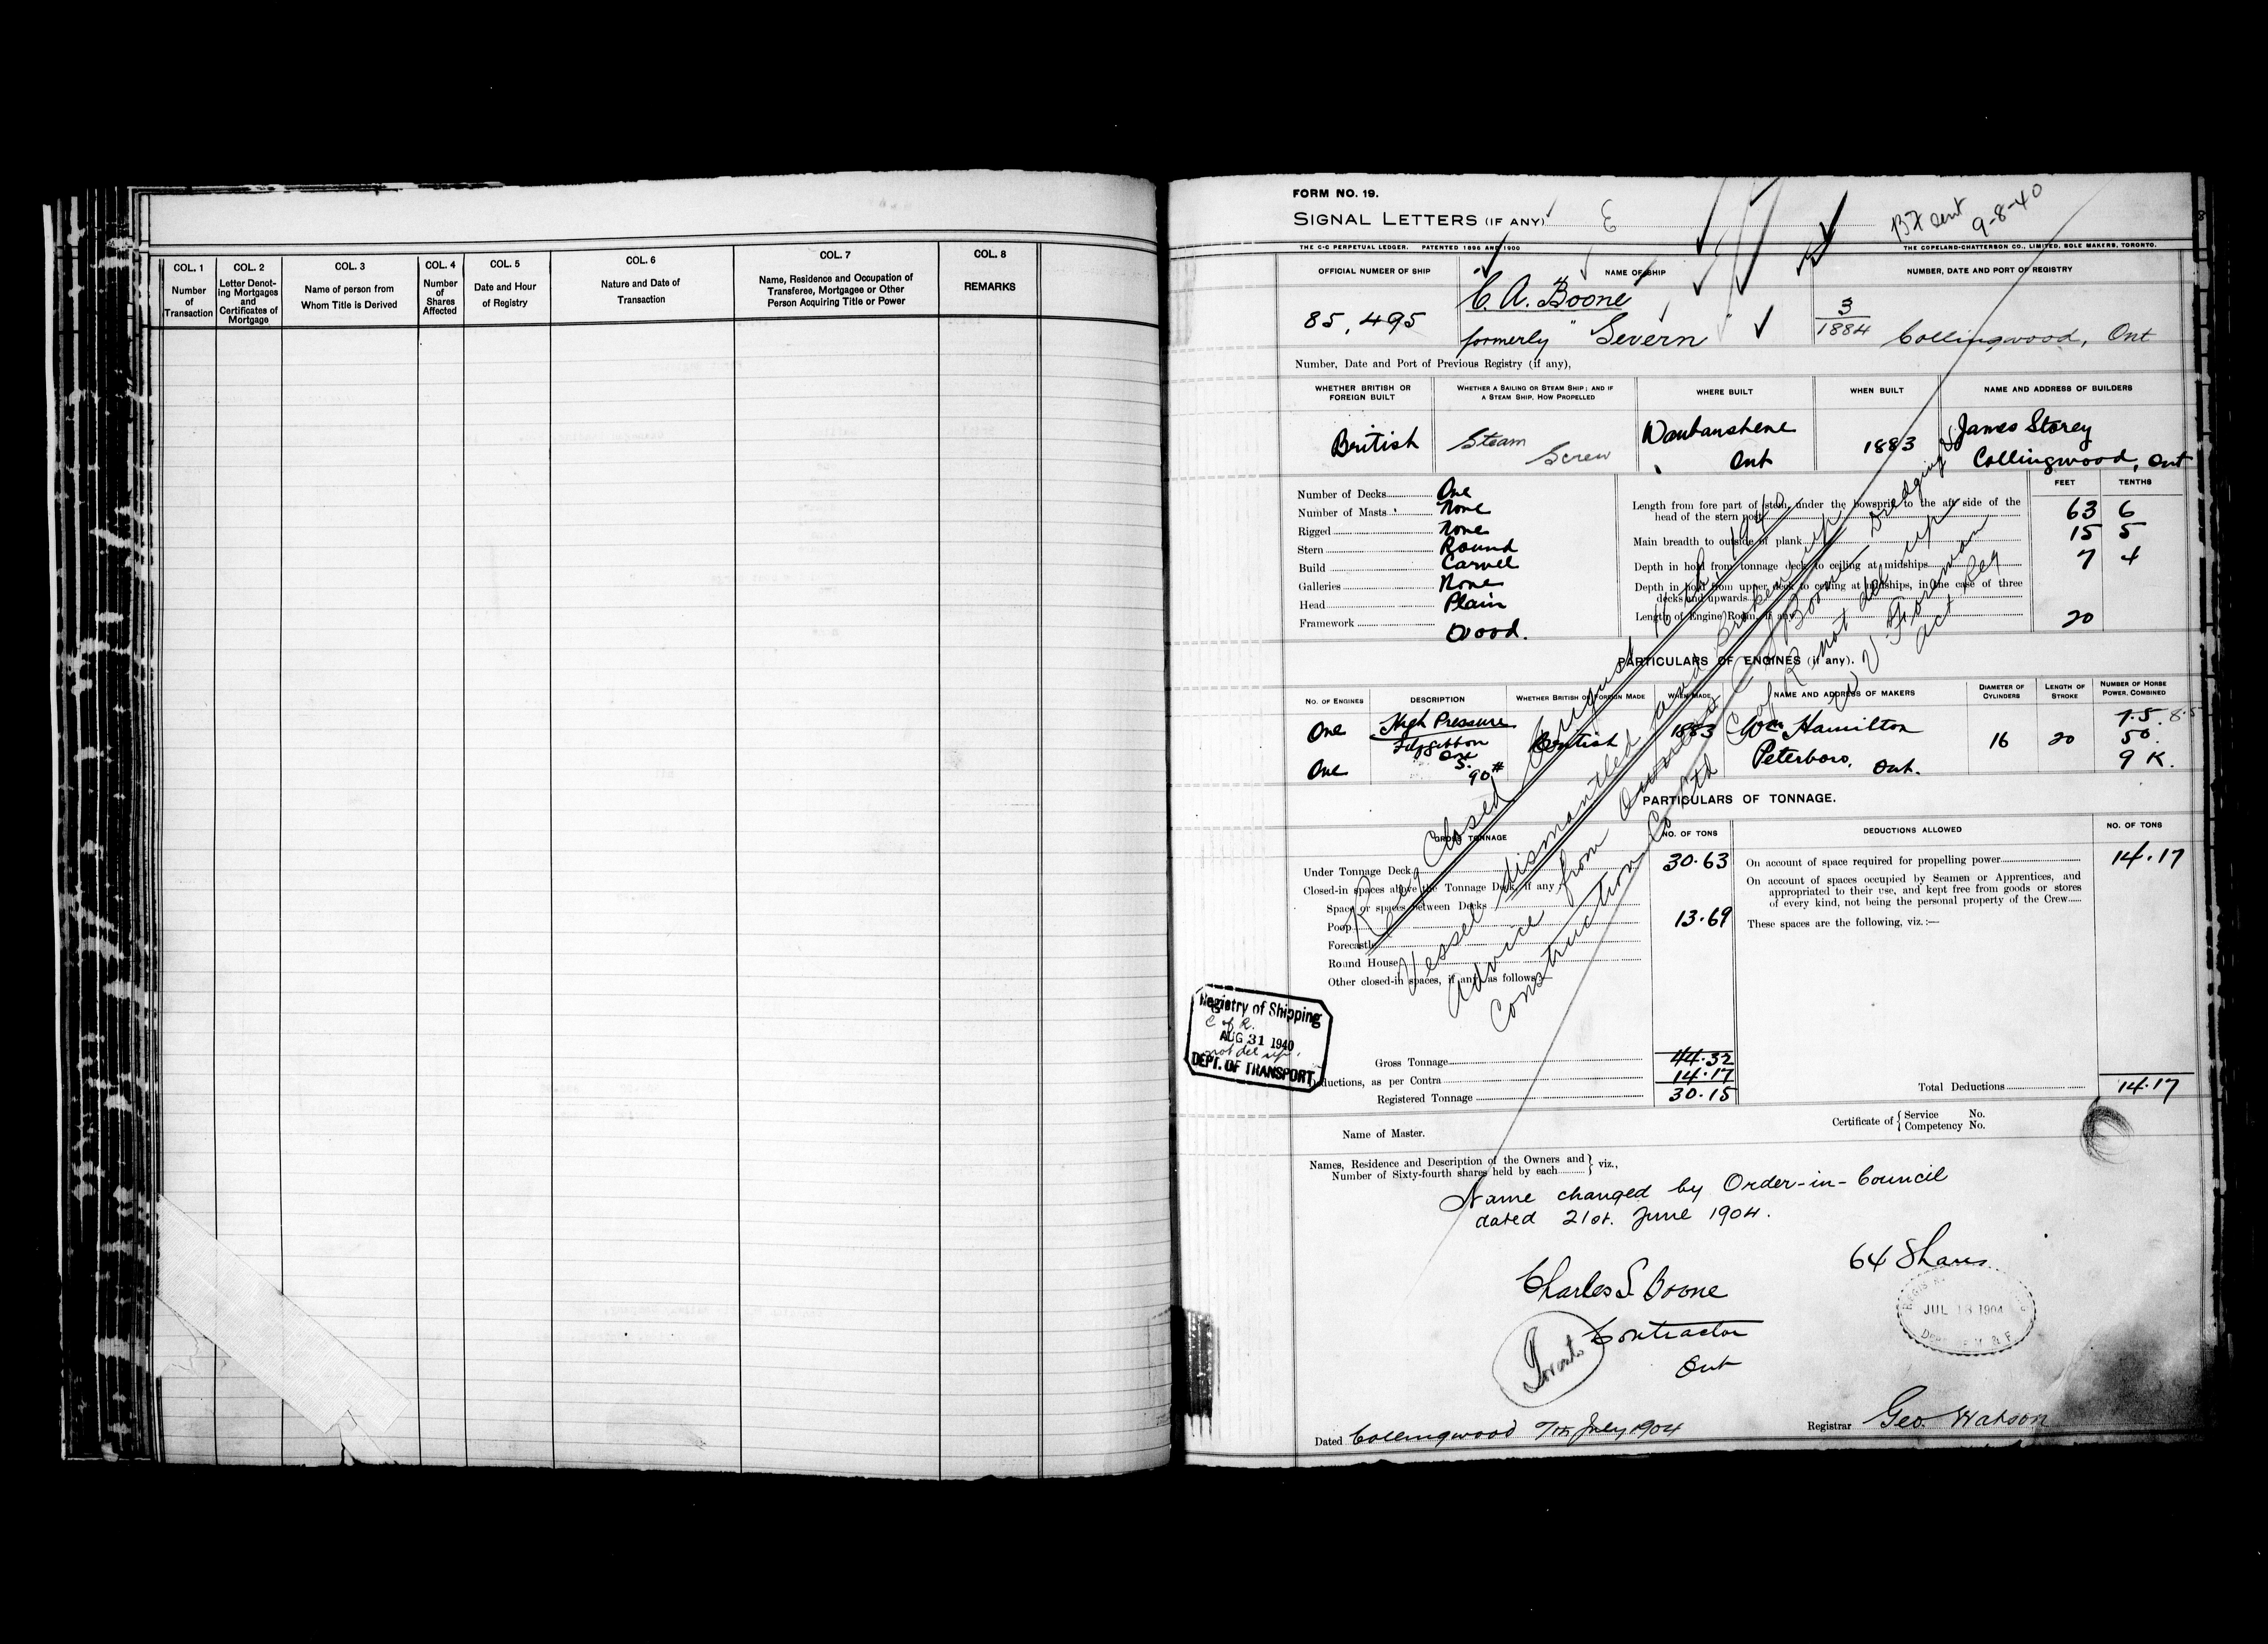 COL. 1
Number
of
Transaction
COL. 2
Letter Denot-
ing Mortgages
and
Certificates of
Mortgage
COL. 3
Name of person from
Whom Title is Derived
COL. 4
Number
of
Shares
Affected
COL. 5
Date and Hour
of Registry
COL. 6
Nature and Date of
Transaction
COL. 7
Name, Residence and Occupation of
Transferee, Mortgagee or Other
Person Acquiring Title or Power
COL. 8
REMARKS
FORM NO. 19.
SIGNAL LETTERS (IF ANY)
sent 9-8-40
THE C-C PERPETUAL LEDGER. PATENTED 1896 AND 1900
THE COPELAND-CHATTERSON CO., LIMITED, SOLE MAKERS, TORONTO.
OFFICIAL NUMBER OF SHIP
NAME OF SHIP
NUMBER, DATE AND PORT OF REGISTRY
85,495
C. A. Boone
formerly "Severn"
3
1884
Collingwood, Ont
Number, Date and Port of Previous Registry (if any),
WHETHER BRITISH OR
FOREIGN BUILT
WHETHER A SAILING OR STEAM SHIP; AND IF
A STEAM SHIP, HOW PROPELLED
WHERE BUILT
WHEN BUILT
NAME AND ADDRESS OF BUILDERS
British
Steam
Screw
Waubaushene
Ont
1883
James Storey
Collingwood, Ont
Number of Decks One
Number of Masts None
Rigged None
Stern Round
Build Carvel
Galleries None
Head Plain
Framework Wood.
FEET TENTHS
Length from fore part of stem, under the bowsprit to the aft side of the
head of the stern post 63 6
Main breadth to outside of plank 15 5
Depth in hold from tonnage deck to ceiling at midships 7 4
Depth in hold from upper deck to ceiling at midships, in the case of three
decks and upwards
Length of Engine Room, if any 20
PARTICULARS OF ENGINES (if any).
NO. OF ENGINES
DESCRIPTION
WHETHER BRITISH OR FOREIGN MADE
WHEN MADE
NAME AND ADDRESS OF MAKERS
DIAMETER OF
CYLINDERS
LENGTH OF
STROKE
NUMBER OF HORSE
POWER, COMBINED
One
High Pressure
British
1883
Wm Hamilton
Peterboro, Ont.
16
20
7.5. 8.5
50
9 K.
One
Fitzgibbon
One
S.
90#
PARTICULARS OF TONNAGE.
GROSS TONNAGE
NO. OF TONS
DEDUCTIONS ALLOWED
NO. OF TONS
Under Tonnage Deck 30.63
Closed-in spaces above the Tonnage Deck, if any
Space or spaces between Decks
Poop 13.69
Forecastle
Round House
Other closed-in spaces, if any, as follows
On account of space required for propelling power 14.17
On account of spaces occupied by Seamen or Apprentices, and
appropriated to their use, and kept free from goods or stores
of every kind, not being the personal property of the Crew
These spaces are the following, viz.:—
Gross Tonnage 44.32
Deductions, as per Contra 14.17
Registered Tonnage 30.15
Total Deductions 14.17
Reg Closed August 16th, 1940
Vessel dismantled and broken up
Advice from Owners C S Boone Dredging &
Construction Co Ltd C of R not del up
W V Foreman
act Reg
Registry of Shipping
C of R.
AUG 31 1940
not del up.
DEPT. OF TRANSPORT
Name of Master.
Certificate of { Service No.
Competency No.
Names, Residence and Description of the Owners and
Number of Sixty-fourth shares held by each } viz.,
Name changed by Order-in-Council
dated 21st. June 1904.
64 Shares
Charles S Boone
Toronto
Contractor
Ont
JUL 18 1904
Dated Collingwood 7th July 1904
Registrar Geo. Watson